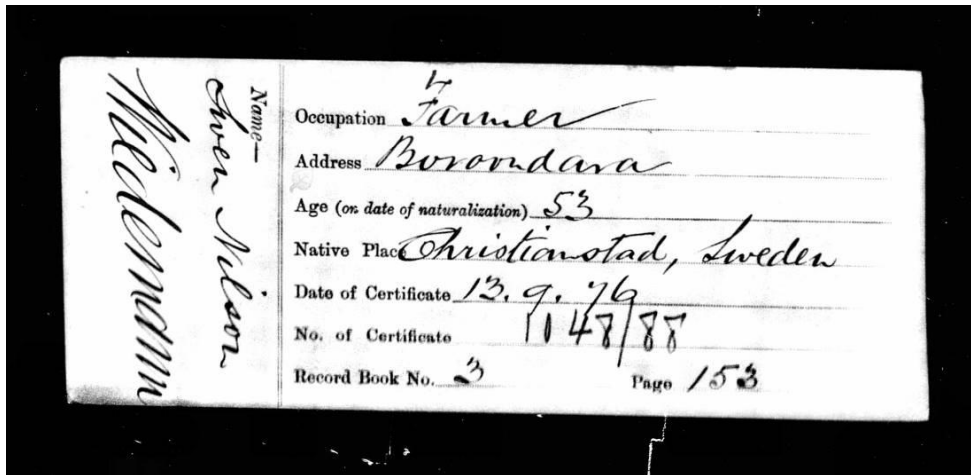 Name—
Swen Nilson
Wiedemann
Occupation Farmer
Address Boroondara
Age (on date of naturalization) 53
Native Place Christianstad, Sweden
Date of Certificate 13. 9. 76
No. of Certificate 1148/88
Record Book No. 3 Page 153